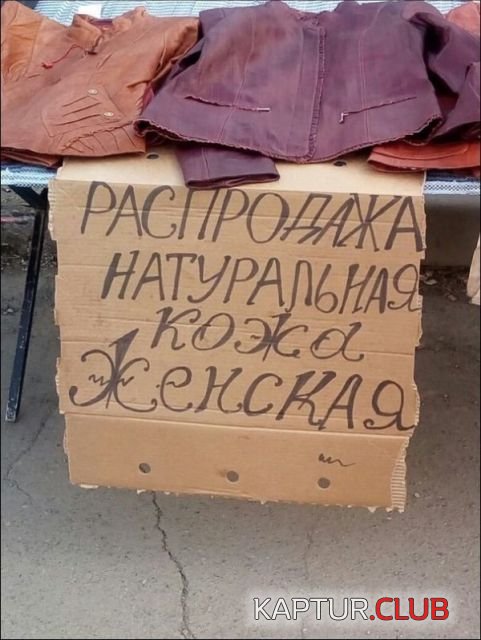 РАСПРОДАЖА
НАТУРАЛЬНАЯ
кожа
Женская
KAPTUR.CLUB